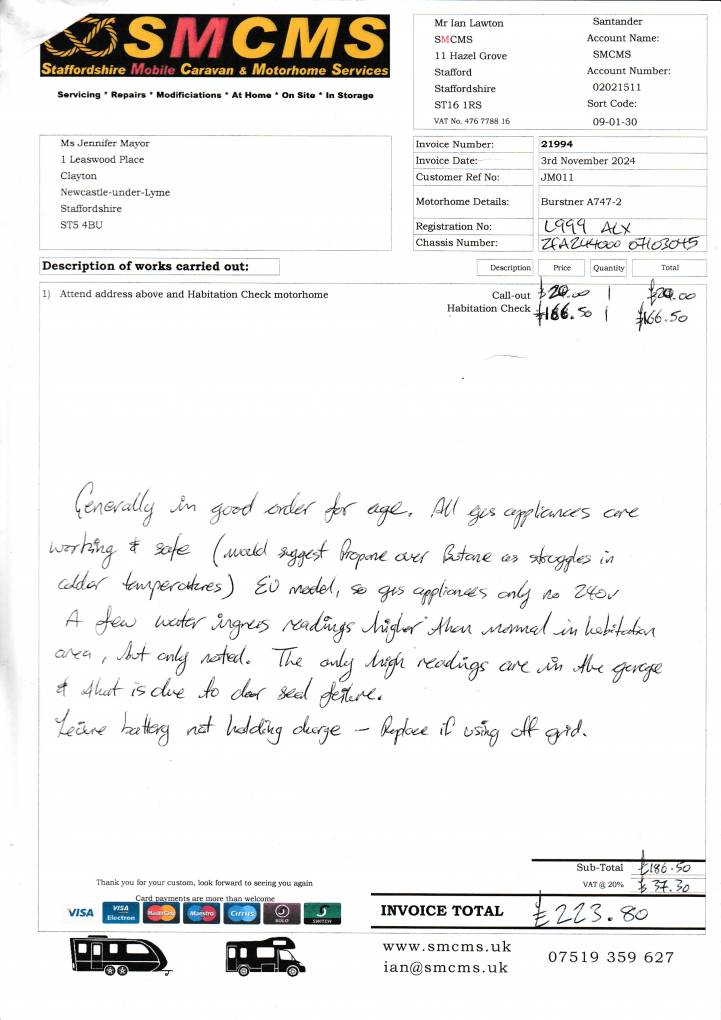 SMCMS
Staffordshire Mobile Caravan & Motorhome Services
Servicing * Repairs * Modificiations * At Home * On Site * In Storage
Mr Ian Lawton
SMCMS
11 Hazel Grove
Stafford
Staffordshire
ST16 1RS
VAT No. 476 7788 16
Santander
Account Name:
SMCMS
Account Number:
02021511
Sort Code:
09-01-30
Ms Jennifer Mayor
1 Leaswood Place
Clayton
Newcastle-under-Lyme
Staffordshire
ST5 4BU
Invoice Number: 21994
Invoice Date: 3rd November 2024
Customer Ref No: JM011
Motorhome Details: Burstner A747-2
Registration No: L999 ALX
Chassis Number: ZFA244000 07103045
Description of works carried out:
Description Price Quantity Total
1) Attend address above and Habitation Check motorhome
Call-out £20.00 1 £20.00
Habitation Check £166.50 1 £166.50
Generally in good order for age. All gas appliances are
working & safe (would suggest Propane over Butane as struggles in
colder temperatures) EU model, so gas appliances only no 240v
A few water ingress readings higher than normal in habitation
area, but only noted. The only high readings are in the garage
& that is due to door seal failure.
Leisure battery not holding charge – Replace if using off grid.
Sub-Total £186.50
VAT @ 20% £37.30
INVOICE TOTAL £223.80
Thank you for your custom, look forward to seeing you again
Card payments are more than welcome
VISA
VISA Electron
MasterCard
Maestro
Cirrus
SOLO
SWITCH
www.smcms.uk
ian@smcms.uk
07519 359 627